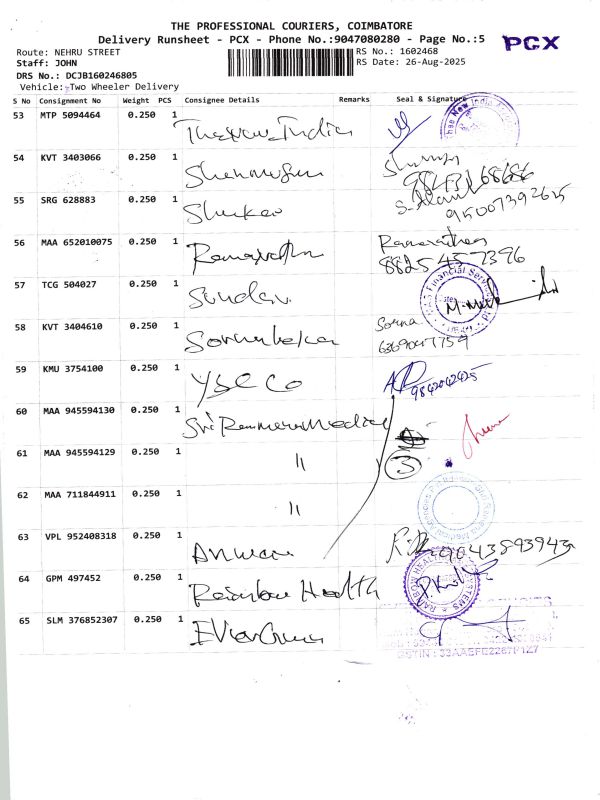 THE PROFESSIONAL COURIERS, COIMBATORE
Delivery Runsheet - PCX - Phone No.:9047080280 - Page No.:5
PCX
Route: NEHRU STREET
RS No.: 1602468
Staff: JOHN
RS Date: 26-Aug-2025
DRS No.: DCJB160246805
Vehicle: Two Wheeler Delivery
S No Consignment No Weight PCS Consignee Details Remarks Seal & Signature
53 MTP 5094464 0.250 1 India
54 KVT 3403066 0.250 1
55 SRG 628883 0.250 1
95007392625
56 MAA 652010075 0.250 1
8825457396
57 TCG 504027 0.250 1 Sundar
58 KVT 3404610 0.250 1 Sorna
6369047759
59 KMU 3754100 0.250 1 YSE Co 9842042425
60 MAA 945594130 0.250 1 Sri
61 MAA 945594129 0.250 1 〃 3
62 MAA 711844911 0.250 1 〃
63 VPL 952408318 0.250 1 Anwar 9043593943
64 GPM 497452 0.250 1 Rainbow Health
65 SLM 376852307 0.250 1 EverGreen